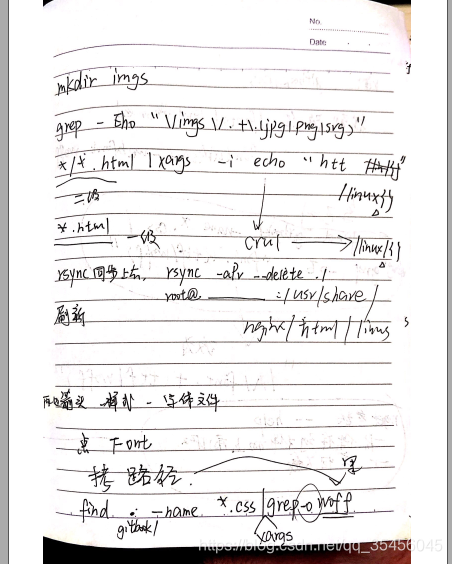 No.
Date
mkdir imgs
grep - Eho "\/imgs\/.+\.(jpg|png|svg)"
*/*.html | xargs -i echo "htt
//linux{}
二级
*.html 一级 crul //linux/{}
rsync 同步上去, rsync -aPv --delete ./
root@ :/usr/share/
刷新 nginx/html/linus
s
- 字体文件
点 Font
拷 路径. 里
find . -name *.css |grep -o woff
gitbook/ xargs
https://blog.csdn.net/qq_35456045